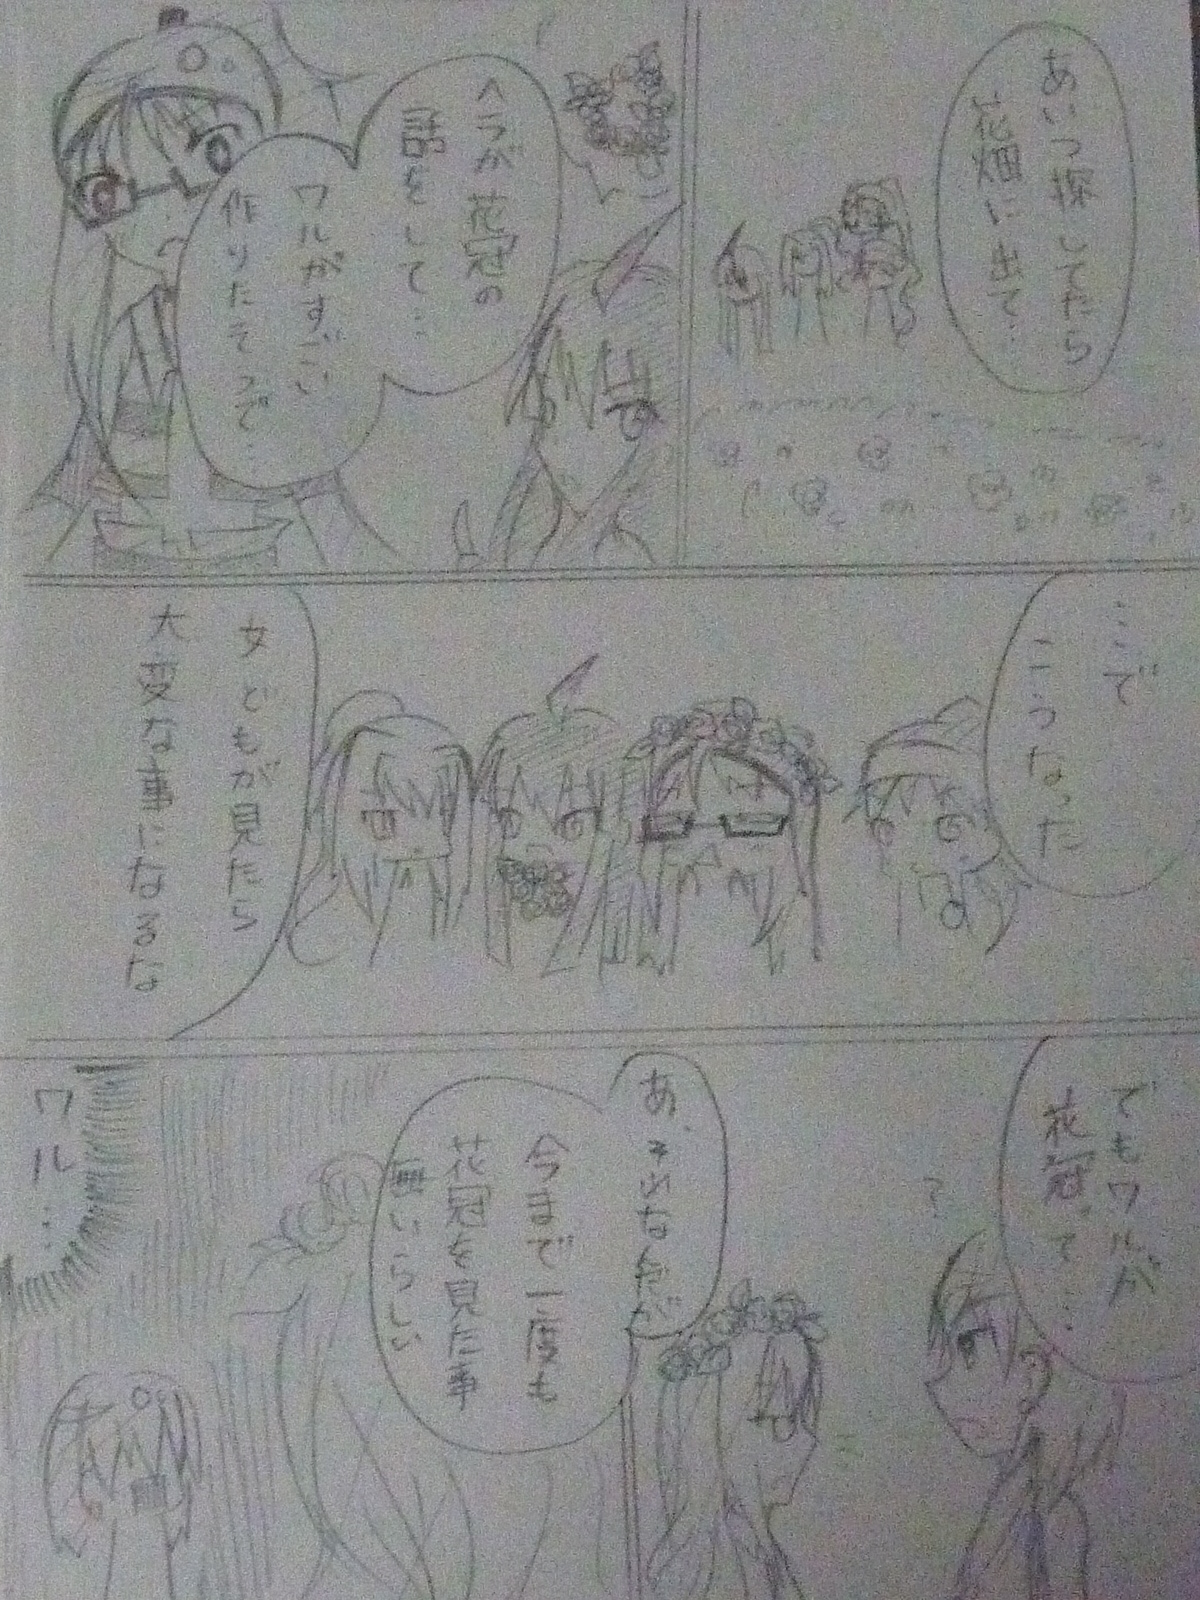 あいつ探してたら
花畑に出て…
ヘラが花冠の
話をして…
ワルがすごい
作りたそうで…
…で
こうなった
女どもが見たら
大変な事になるな
でもワルが
花冠って…
?
あ、そんなんだが
今まで一度も
花冠を見た事
無いらしい
ワル…